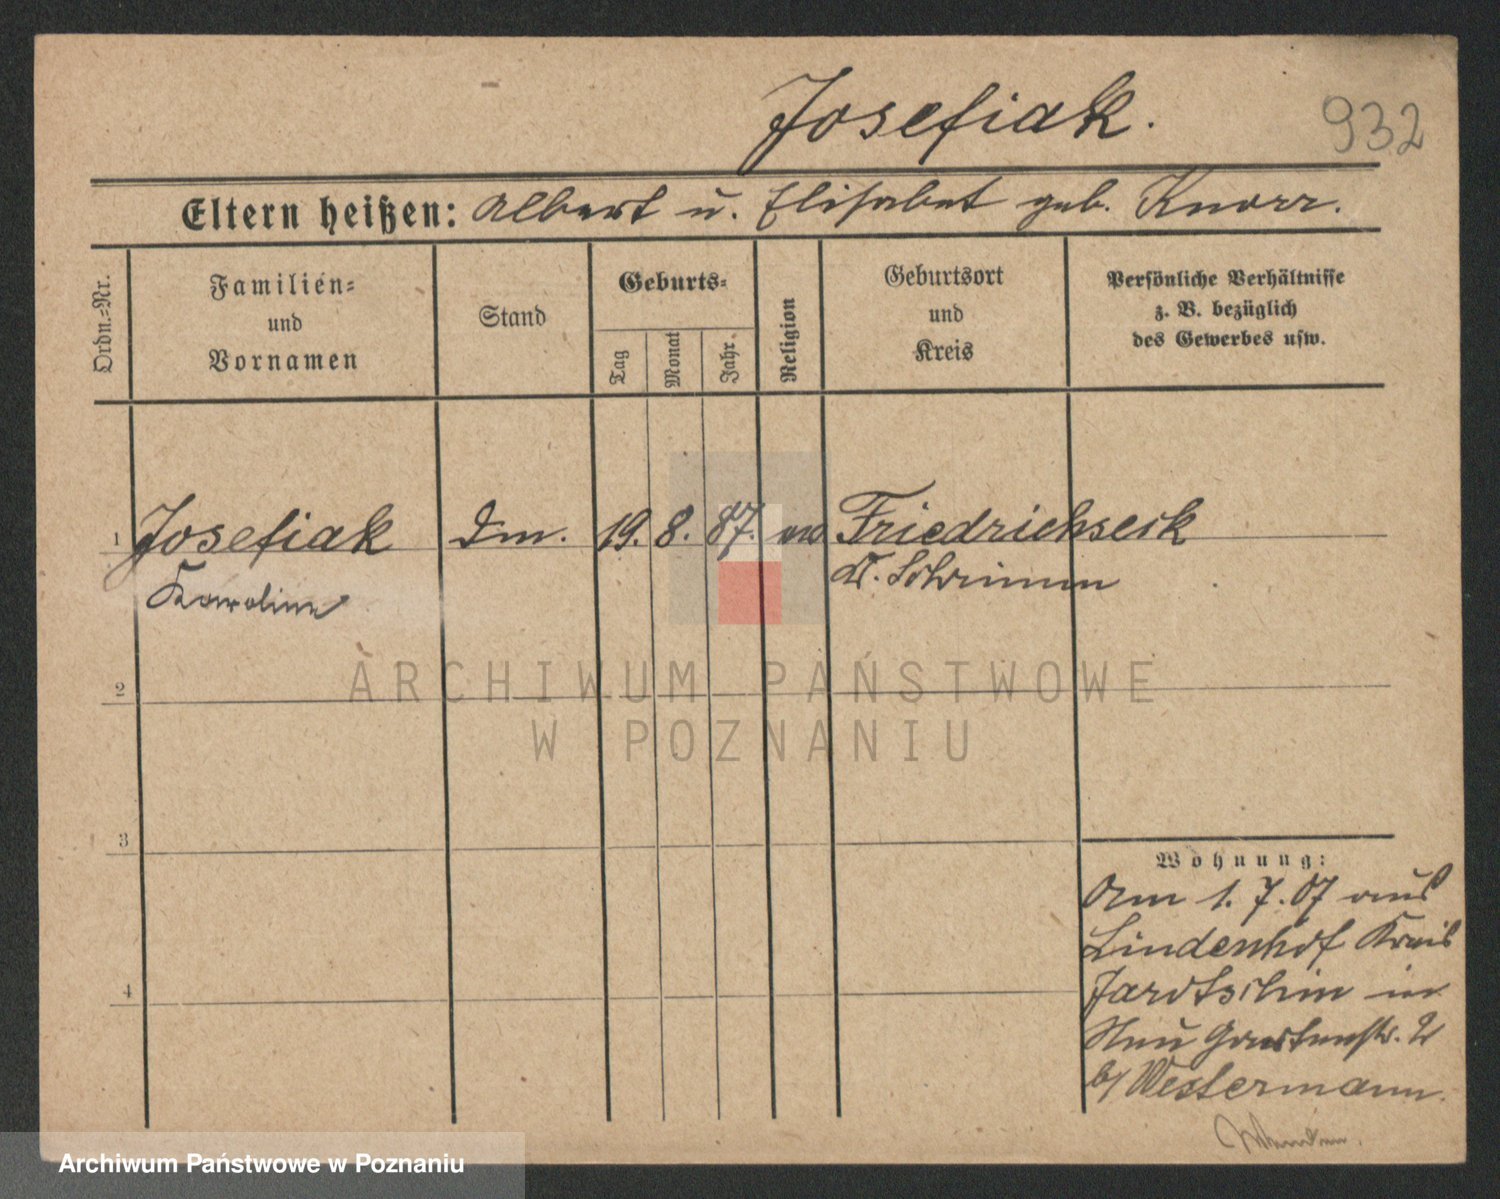 Josefiak.
932
Eltern heißen: Albert u. Elisabet geb. Knorr.
Ordn.=Nr.
Familien=
und
Vornamen
Stand
Geburts=
Tag
Monat
Jahr.
Religion
Geburtsort
und
Kreis
Persönliche Verhältnisse
z. B. bezüglich
des Gewerbes usw.
1 Josefiak Dm. 19. 8. 87. ev Friedrichseck
Karoline K. Schrimm
2
3
4
Wohnung:
Am 1. 7. 07 aus
Lindenhof Kreis
Jarotschin in
Neu Gartenstr. 2
b/ Westermann.
ARCHIWUM PAŃSTWOWE
W POZNANIU
Archiwum Państwowe w Poznaniu